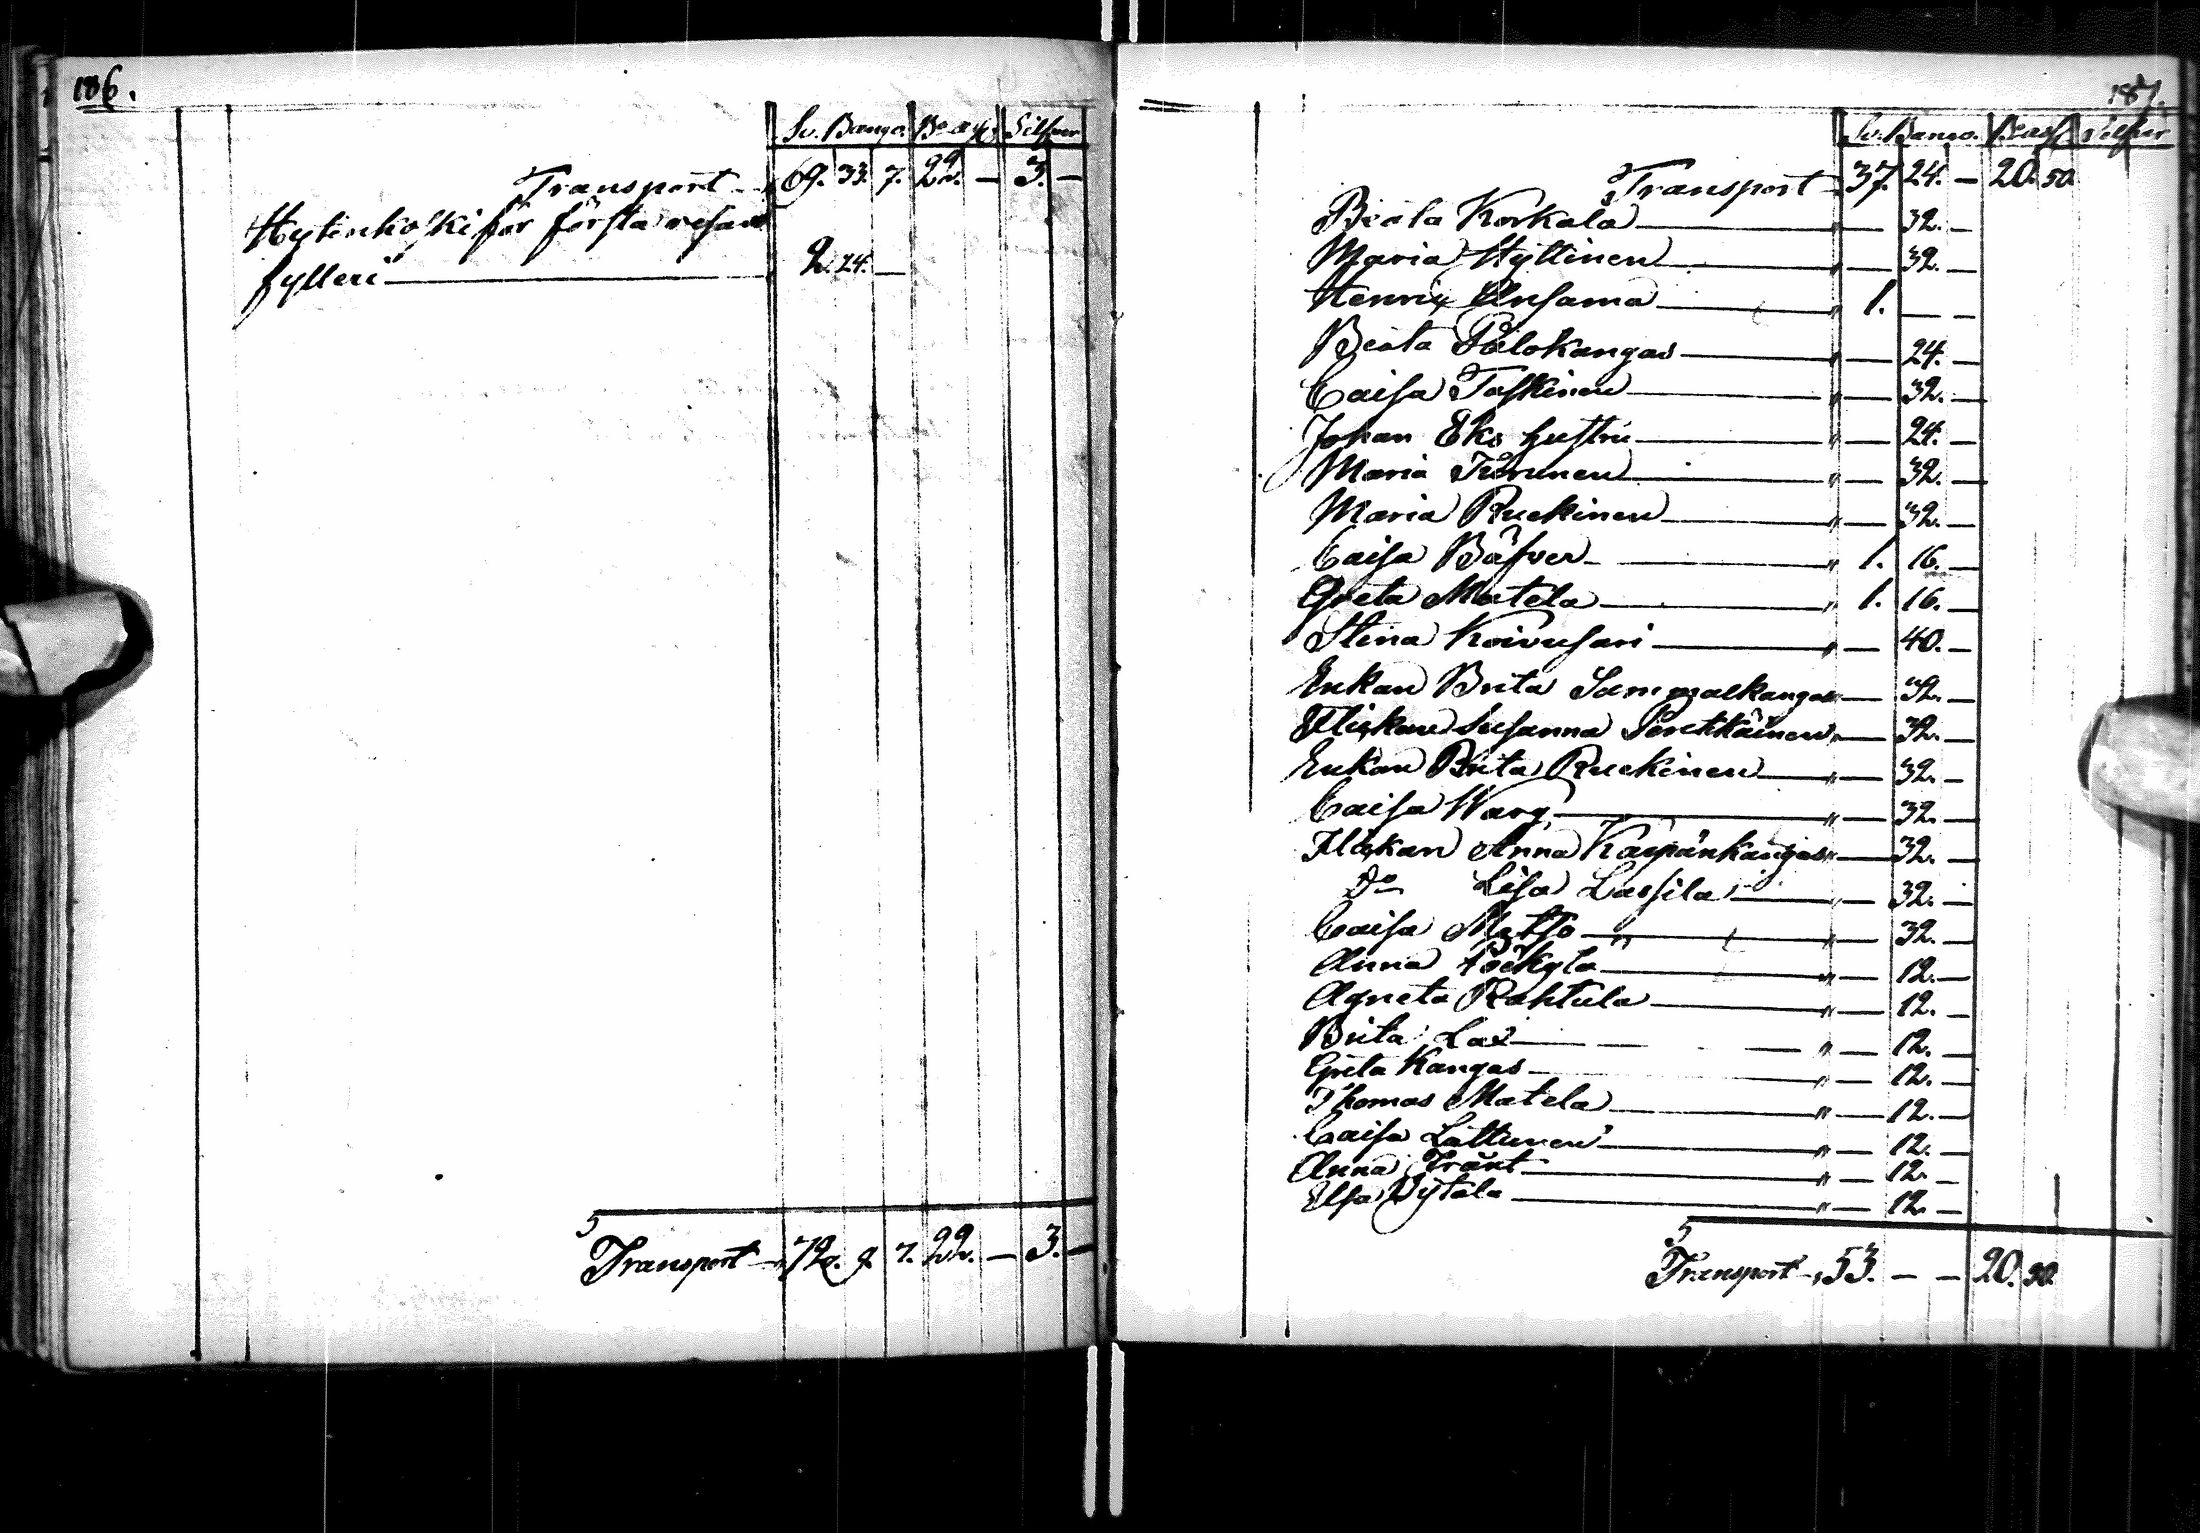 186.
Sv. Banco. Bco ass. Silfver
Transport 69. 33. 7. 22. — 3. —
Hytinkoski för första resan
fylleri — 2. 24. —
Transport — 72. 9. 7. 22. — 3. —
187.
Sv. Banco. Bco ass. Silfver
Transport 37. 24. — 20. 50.
Beata Korkala — " — 32. —
Maria Hyttinen — " — 32. —
Henric Ansama — " 1. — —
Beata Palokangas — " — 24. —
Caisa Taskinen — " — 32. —
Johan Eks hustru — " — 24. —
Maria Korunen — " — 32. —
Maria Ruckinen — " — 32. —
Caisa Bäfver — " 1. 16. —
Greta Matela — " 1. 16. —
Stina Koivusari — " — 40. —
Enkan Brita Sammalkangas — 32. —
Flickan Susanna Penttäinen " — 32. —
Enkan Brita Ruckinen — " — 32. —
Caisa Warg — " — 32. —
Flickan Anna Karpänkangas " — 32. —
Do Lisa Lassila — " — 32. —
Caisa Matso — " — 32. —
Anna — " — 12. —
Agneta Rahtula — " — 12. —
Brita Lax — " — 12. —
Greta Kangas — " — 12. —
Thomas Matela — " — 12. —
Caisa Lattunen — " — 12. —
Anna Trant — " — 12. —
Elsa — " — 12. —
Transport — 53. — — 20. 50.